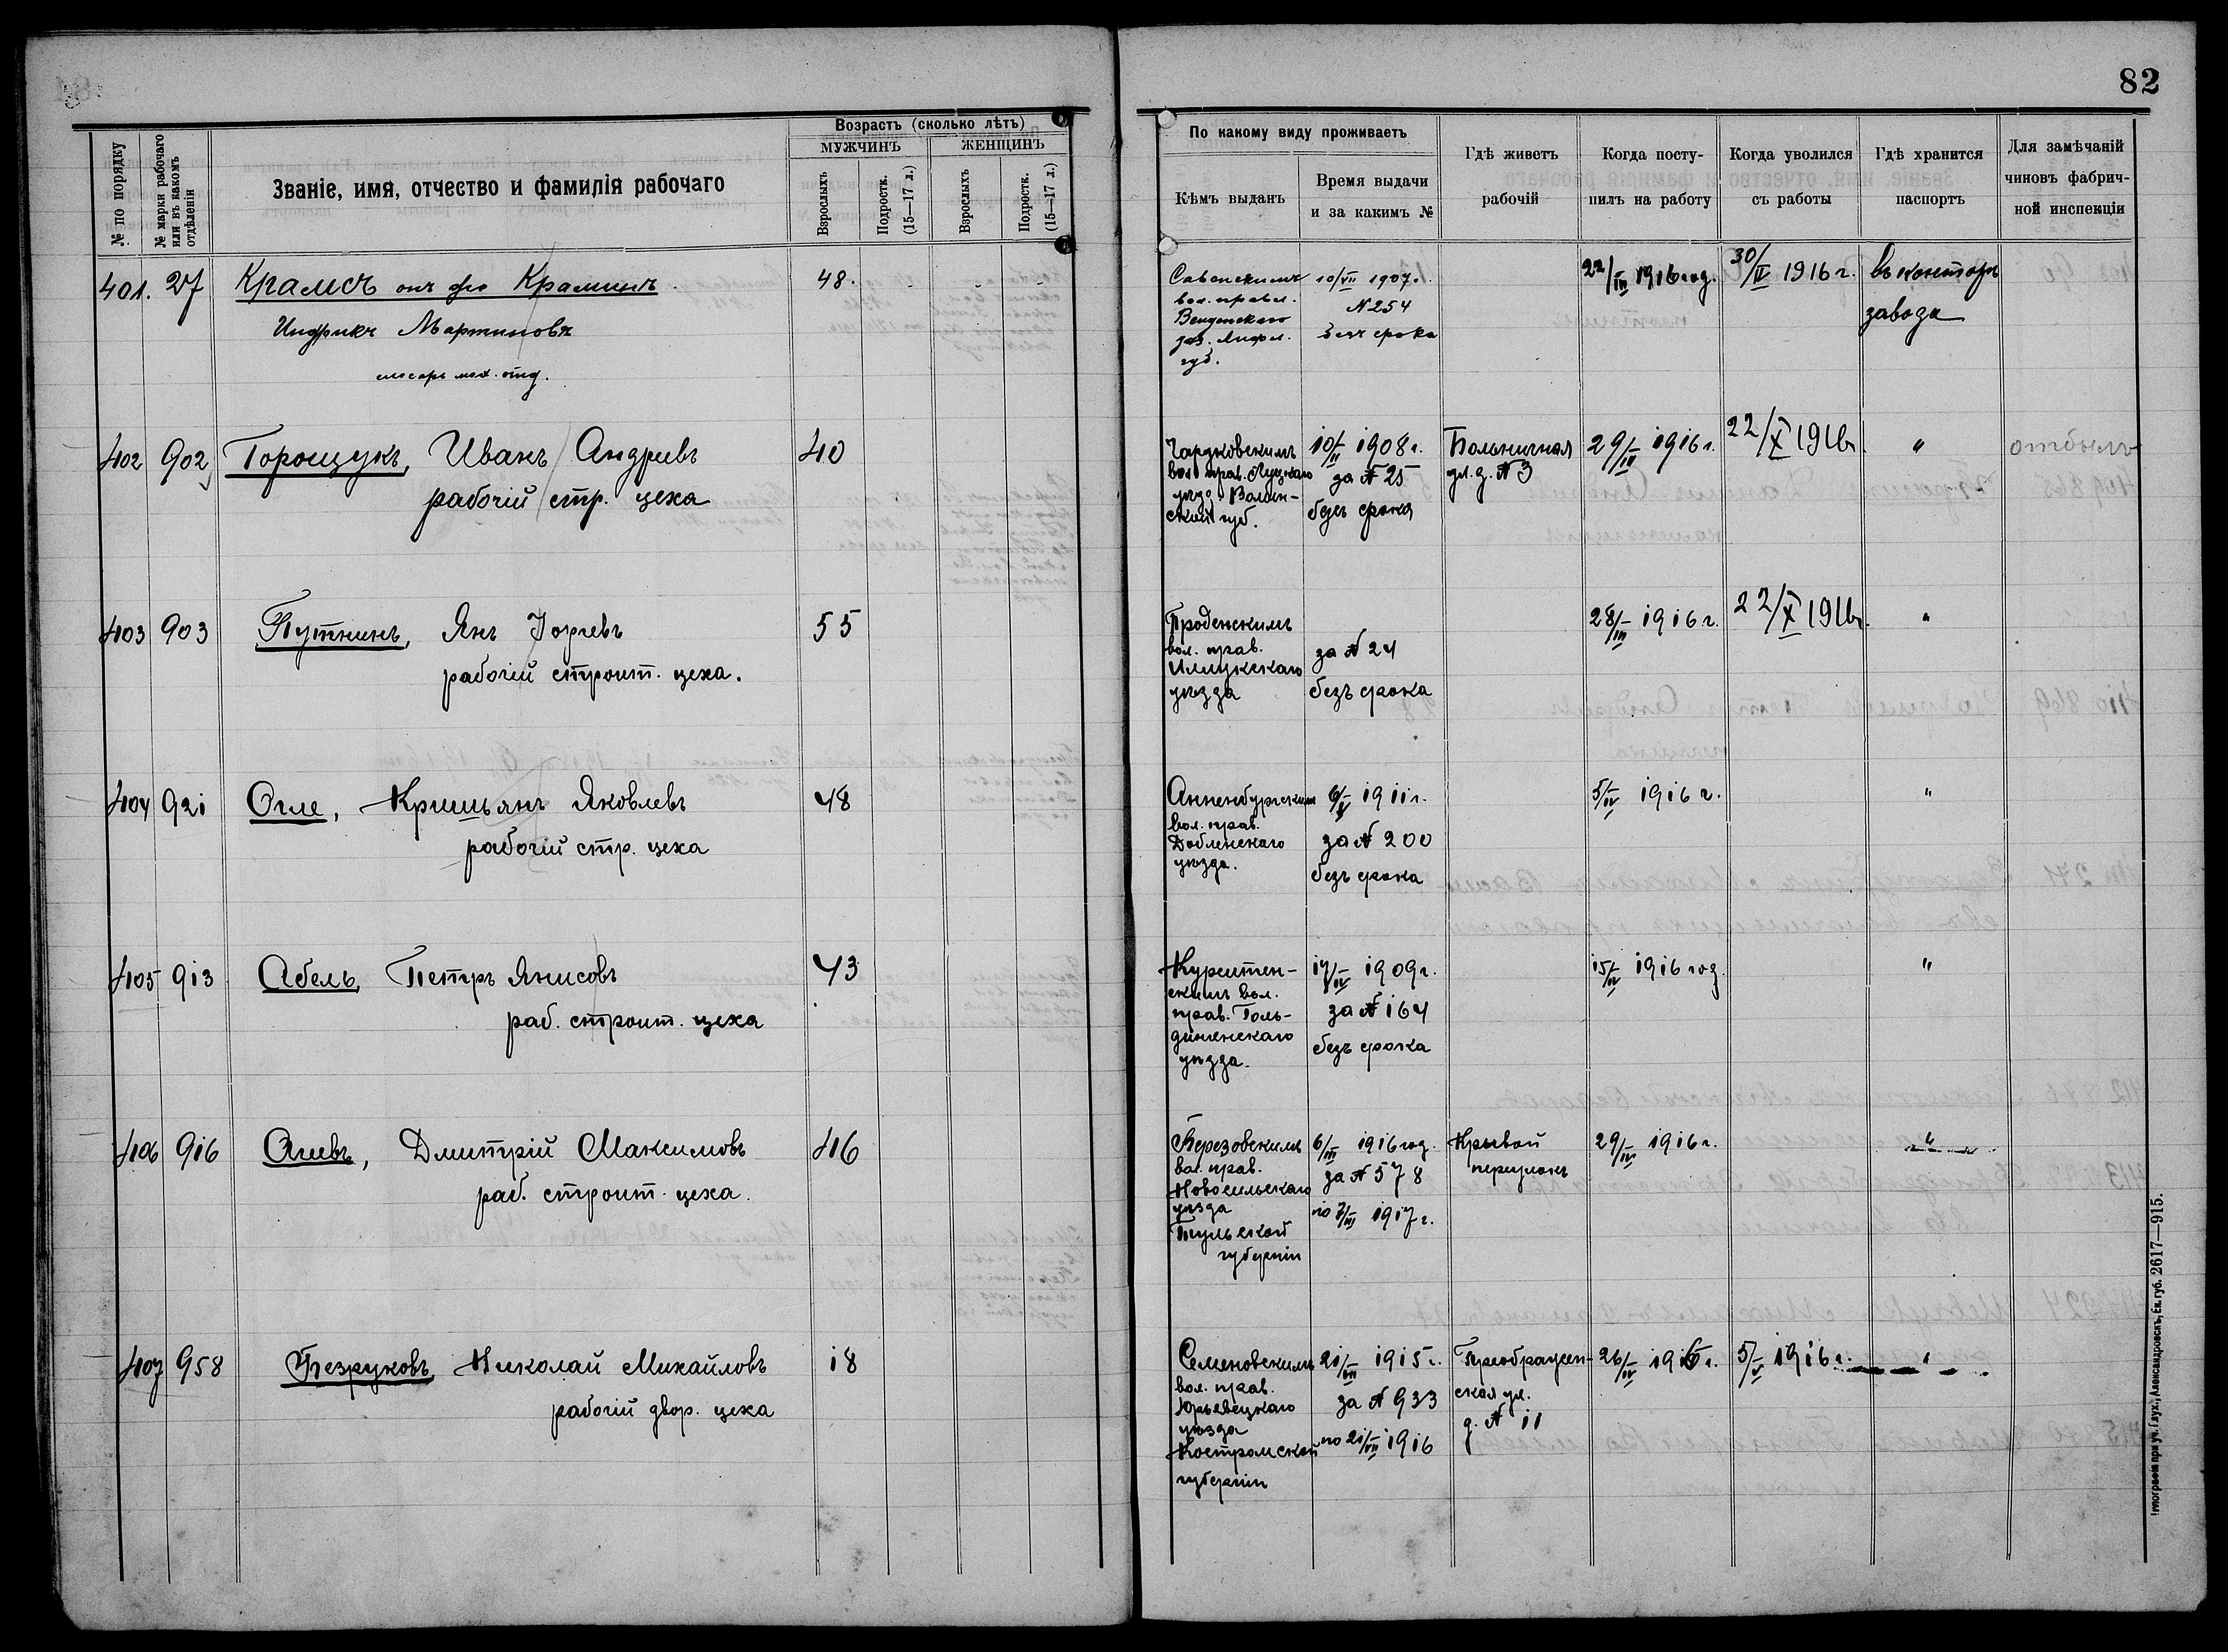 82
№ по порядку
№ марки рабочаго или въ какомъ отдѣленіи
Званіе, имя, отчество и фамилія рабочаго
Возрастъ (сколько лѣтъ)
МУЖЧИНЪ
ЖЕНЩИНЪ
Взрослыхъ
Подростк. (15—17 л.)
Взрослыхъ
Подростк. (15—17 л.)
По какому виду проживаетъ
Кѣмъ выданъ
Время выдачи
и за какимъ №
Гдѣ живетъ
рабочій
Когда посту-
пилъ на работу
Когда уволился
съ работы
Гдѣ хранится
паспортъ
Для замѣчаній
чиновъ фабрич-
ной инспекціи
401. 27 Крамсъ онъ же Краминъ 48. - - -
Индрикъ Мартиновъ
слесарь мех. отд.
вол. правл.
Венденскаго
губ.
10/VII 1907 г.
№ 254
безъ срока
22/III 1916 год.
30/IV 1916 г.
въ конторѣ
завода
402 902 Торощукъ, Иванъ Андреевъ 40
рабочій стр. цеха
вол. прав. Луцкаго
уѣзд. Волын-
ской губ.
10/II 1908 г.
за № 25
безъ срока
Больничная
ул. д. № 3
29/III 1916 г.
22/X 1916 г.
"
отбылъ
403 903 Путнинъ, Янъ Юрьевъ 55
рабочій строит. цеха.
Проденскимъ
вол. прав.
Иллукскаго
уѣзда
за № 24
безъ срока
28/III 1916 г.
22/X 1916 г.
"
404 921 Огле, Кришьянъ Яковлевъ 48
рабочій стр. цеха
Анненбургскимъ
вол. прав.
Добленскаго
уѣзда.
6/V 1911 г.
за № 200
безъ срока
5/IV 1916 г.
"
405 913 Абель, Петръ Янисовъ 43
раб. строит. цеха
Курситен-
скимъ вол.
прав. Голь-
дингенскаго
уѣзда.
17/IV 1909 г.
за № 164
безъ срока
15/IV 1916 год.
"
406 916 Агеевъ, Дмитрій Максимовъ 46
раб. строит. цеха.
Березовскимъ
вол. прав.
Новосильскаго
уѣзда
Тульской
губерніи
6/III 1916 год.
за № 578
по 7/III 1917 г.
Крывой
переулокъ
29/IV 1916 г.
"
407 958 Безруковъ, Николай Михайловъ 18
рабочій двор. цеха
Семеновскимъ
вол. прав.
Юрьевецкаго
уѣзда
Костромской
губерніи
21/VII 1915 г.
за № 933
по 21/VII 1916
Преображен-
ская ул.
д. № 11
26/IV 1916 г.
5/V 1916 г.
"